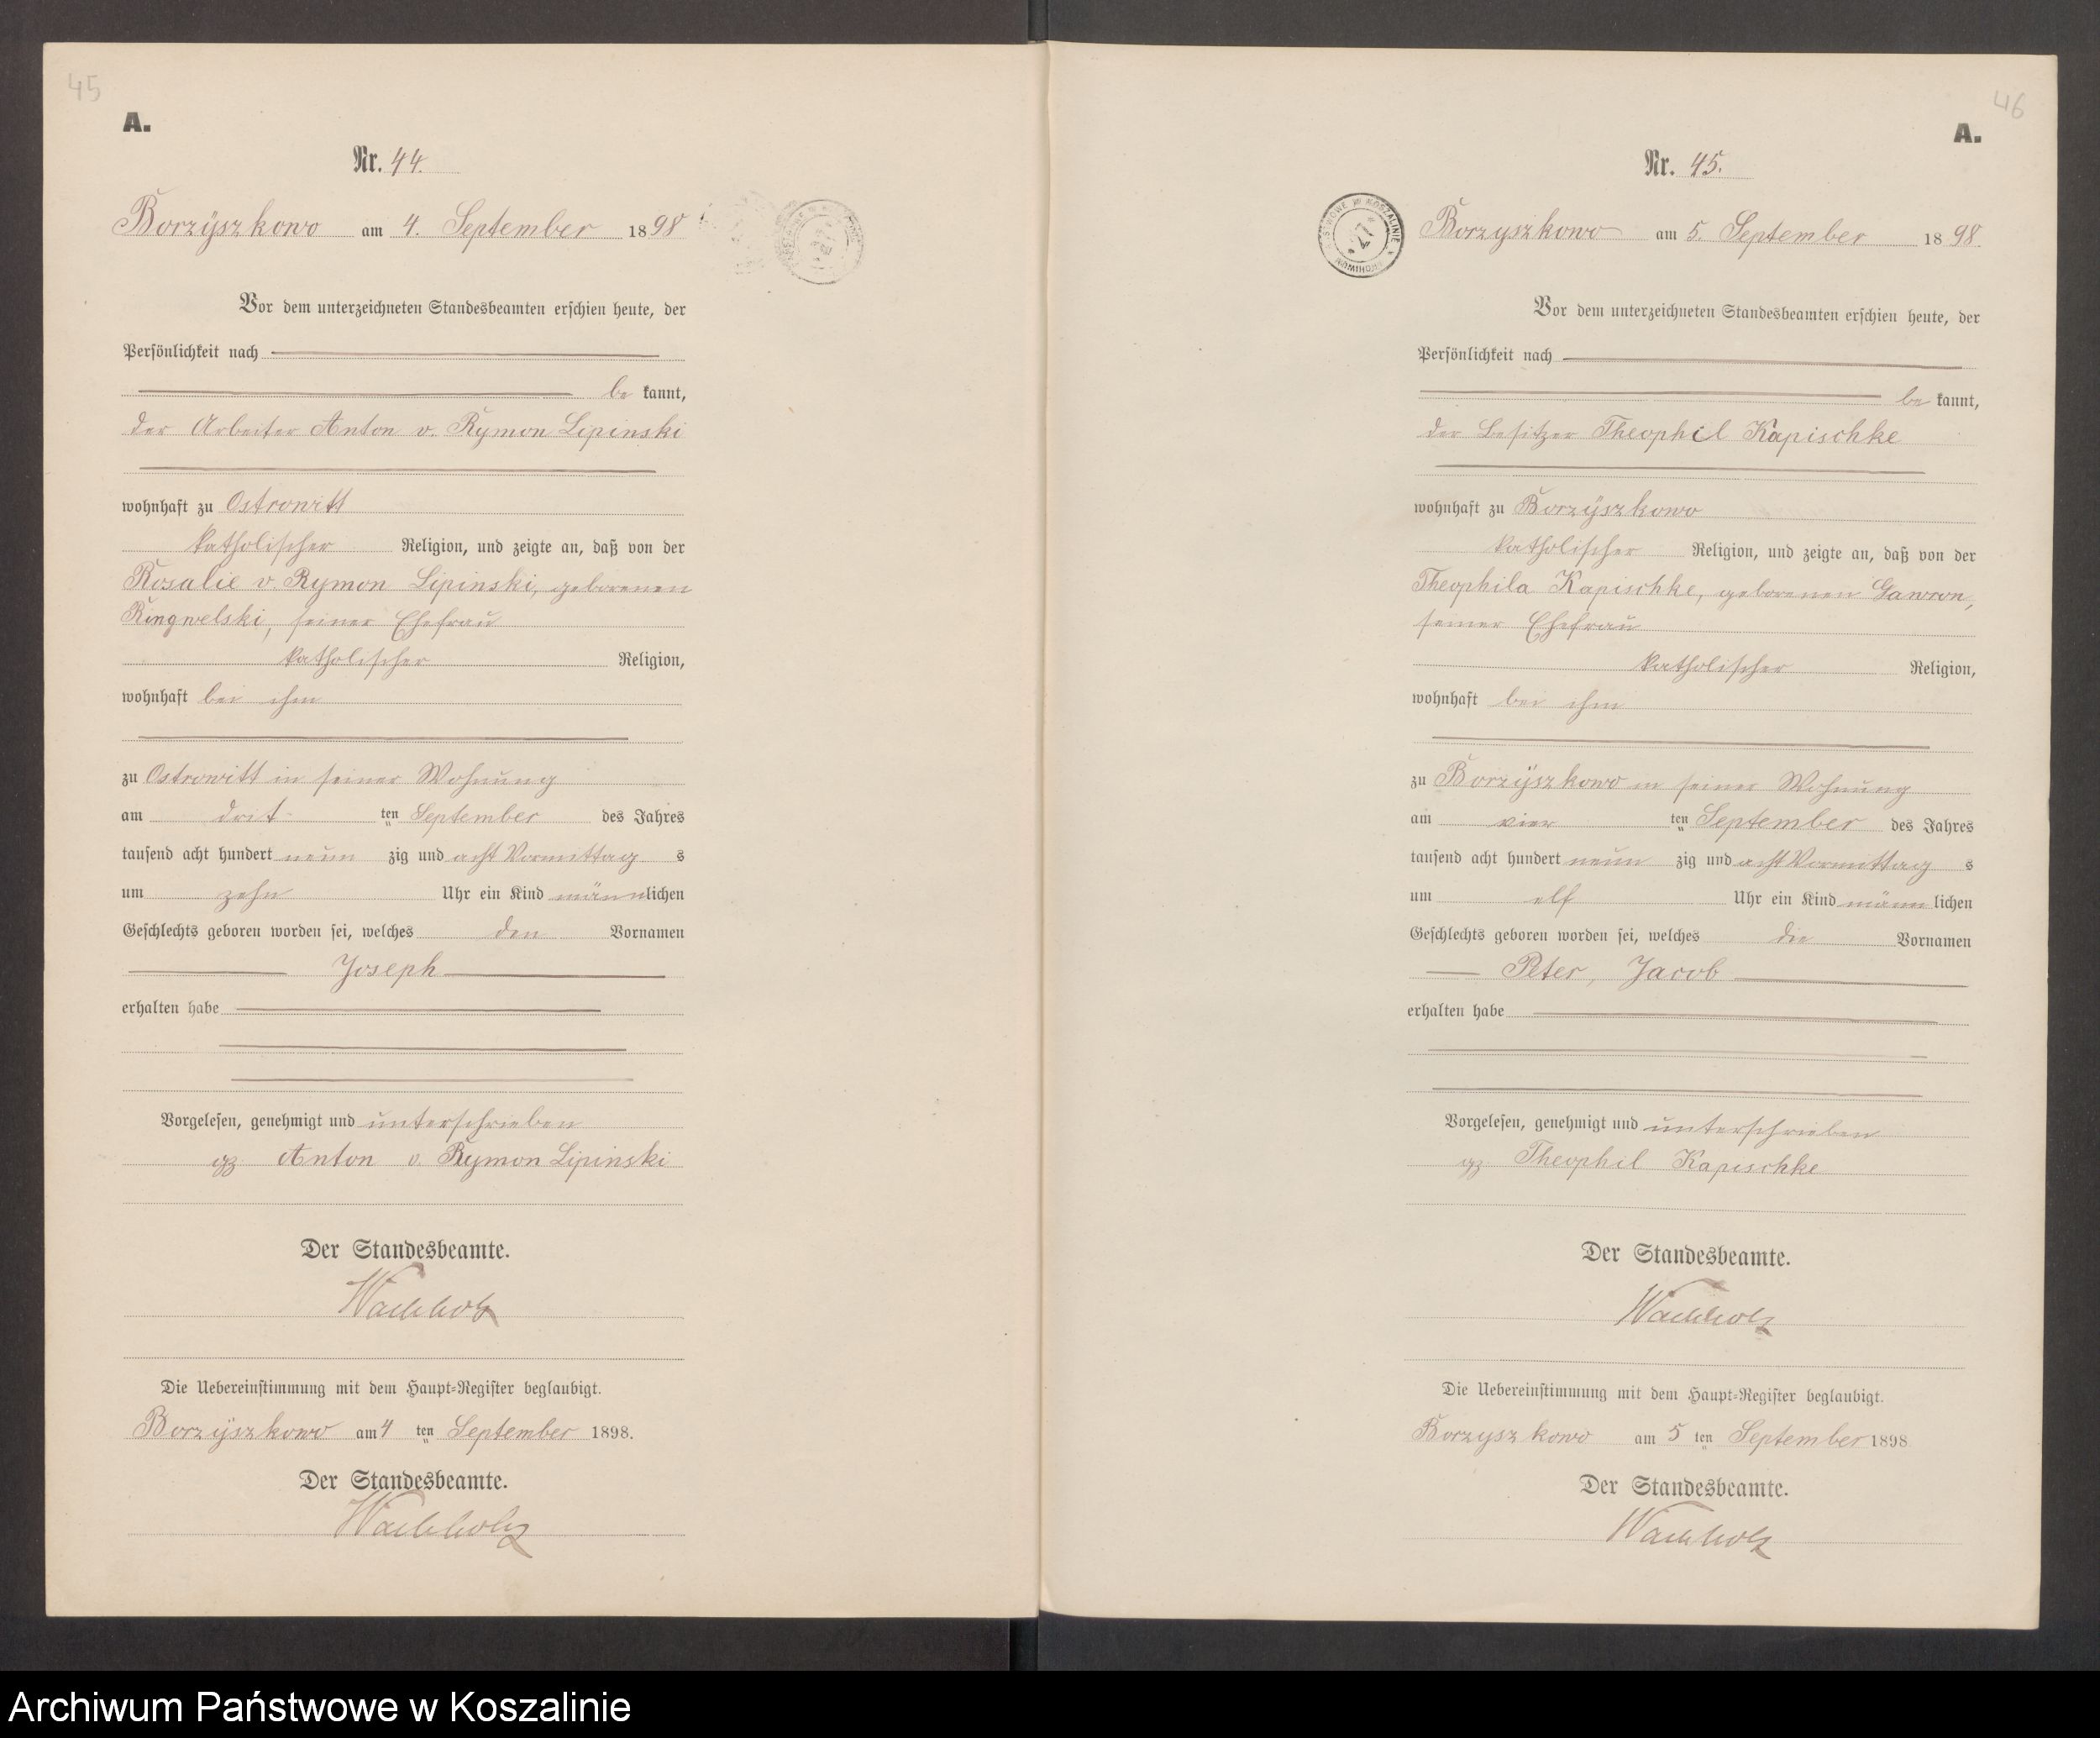 45
A.
Nr. 44.
Borzÿszkowo am 4. September 1898
Vor dem unterzeichneten Standesbeamten erschien heute, der
Persönlichkeit nach
be kannt,
der Arbeiter Anton v. Rymon Lipinski
wohnhaft zu Ostrowitt
katholischer Religion, und zeigte an, daß von der
Rosalie v. Rymon Lipinski, geborenen
Ringwelski, seiner Ehefrau
katholischer Religion,
wohnhaft bei ihm
zu Ostrowitt in seiner Wohnung
am drit ten September des Jahres
tausend acht hundert neun zig und acht Vormittag s
um zehn Uhr ein Kind männlichen
Geschlechts geboren worden sei, welches den Vornamen
Joseph
erhalten habe
Vorgelesen, genehmigt und unterschrieben
gz Anton v. Rymon Lipinski
Der Standesbeamte.
Wachholz
Die Uebereinstimmung mit dem Haupt-Register beglaubigt.
Borzÿszkowo am 4 ten September 1898.
Der Standesbeamte.
Wachholz
46
A.
Nr. 45.
Borzyszkowo am 5. September 1898.
Vor dem unterzeichneten Standesbeamten erschien heute, der
Persönlichkeit nach
be kannt,
der Besitzer Theophil Kapischke
wohnhaft zu Borzÿszkowo
katholischer Religion, und zeigte an, daß von der
Theophila Kapischke, geborenen Gawron,
seiner Ehefrau
katholischer Religion,
wohnhaft bei ihm
zu Borzÿszkowo in seiner Wohnung
am vier ten September des Jahres
tausend acht hundert neun zig und acht Vormittag s
um elf Uhr ein Kind männ lichen
Geschlechts geboren worden sei, welches die Vornamen
Peter, Jacob
erhalten habe
Vorgelesen, genehmigt und unterschrieben
gz Theophil Kapischke
Der Standesbeamte.
Wachholz
Die Uebereinstimmung mit dem Haupt-Register beglaubigt.
Borzyszkowo am 5 ten September 1898
Der Standesbeamte.
Wachholz
Archiwum Państwowe w Koszalinie